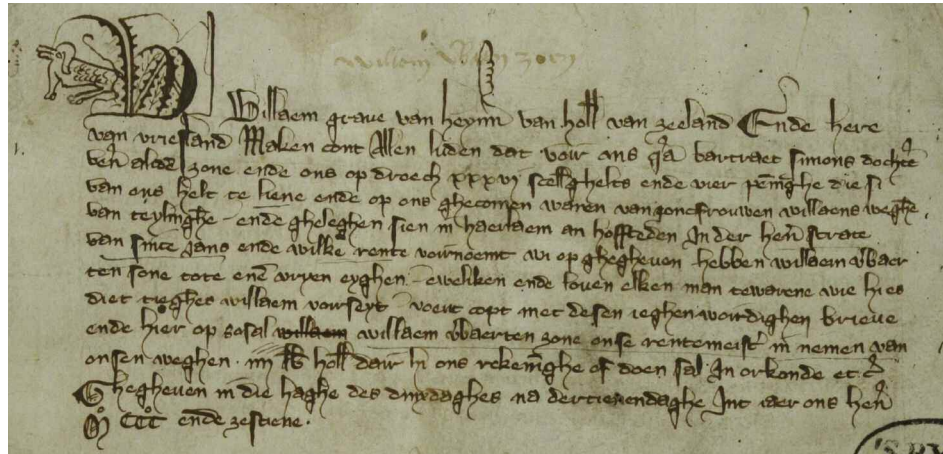 Willem
Willaem grave van heyn̄ van holl̄ van zeeland Ende here
van vriesland Maken cont Allen luden dat voir ons q̄a bartraet simons dochtē
zone ende ons op droech xxxvi scell̄ghelts ende vier pen̄ighe die si
van ons helt te liene ende op ons ghecomen waren van joncfrouwen willaems weghe
van teylinghe ende gheleghen sien in haerlaem an hoffsteden In der hēn strate
van sinte Jans ende wilke rente voirnoemt wi op ghegheven hebben willaem
ten sone tote enē vryen eyghen eweliken ende loven elken man te warene wie hi es
diet tieghes willaem vorseyt voert copt met desen ieghenwordighen brieve
ende hier op so sal willaem willaem zone onse rentemeist̄ in nemen van
onsen weghen iiij lb holl̄ dair hi ons reken̄ighe of doen sal In orkonde et c̄
Ghegheven in die haghe des daghes na dertienendaghe Int iaer ons hēn
M CCC ende zestiene